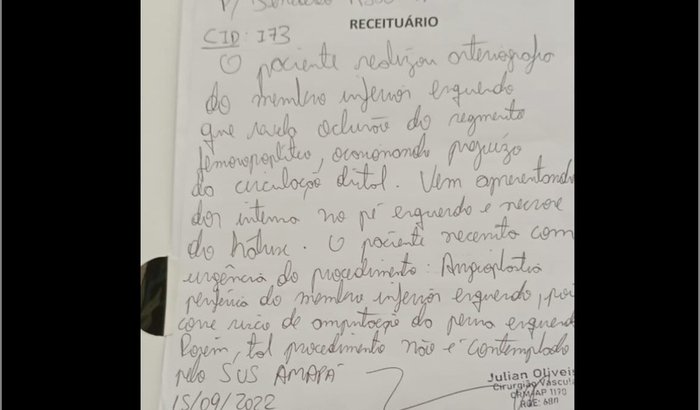 P/
RECEITUÁRIO
CID: I73
O paciente realizou arteriografia
do membro inferior esquerdo
que revela oclusão do segmento
femoropoplíteo, ocasionando prejuízo
da circulação distal. Vem apresentando
dor intensa no pé esquerdo e necrose
do hálux. O paciente necessita com
urgência do procedimento: Angioplastia
periférica do membro inferior esquerdo, pois
corre risco de amputação da perna esquerda
Porém, tal procedimento não é contemplado
pelo SUS AMAPÁ
15/09/2022
Julian Oliveis
Cirurgião Vascula
CRM/AP 1170
RQE: 680